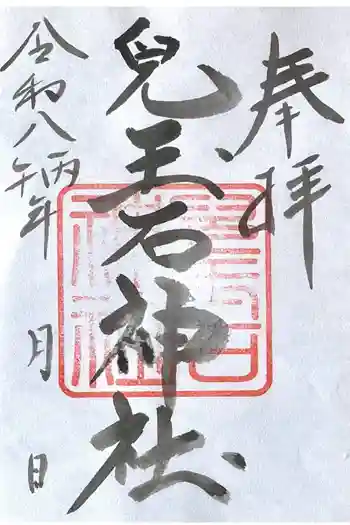 奉拝
兒玉石神社
令和八丙午年
月
日